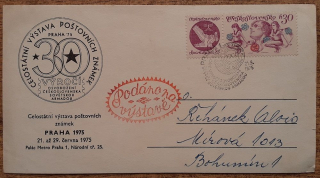 CELOSTÁTNÍ VÝSTAVA POŠTOVNÍCH ZNÁMEK
PRAHA 75
30
VÝROČÍ
OSVOBOZENÍ
ČESKOSLOVENSKA
SOVĚTSKOU
ARMÁDOU
Celostátní výstava poštovních
známek
PRAHA 1975
21. až 29. června 1975
Československo
30
Podáno na
výstavě
Řehánek Alois
Mírová 1013
Bohumín 1